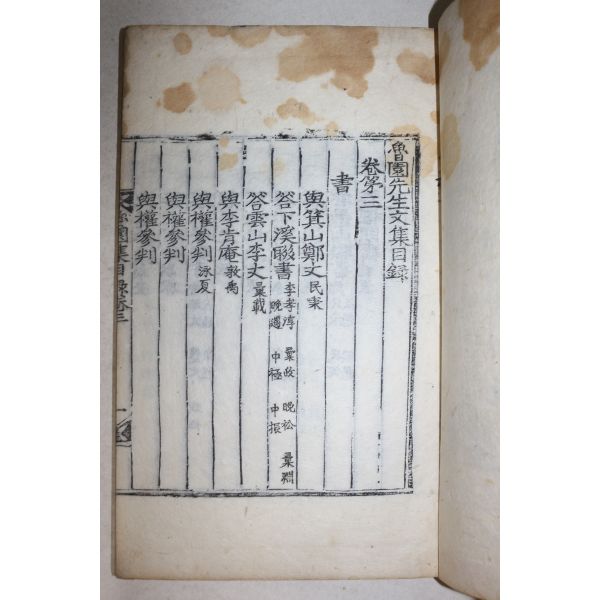 魯園先生文集目録
卷第三
書
與箕山鄭丈 民秉
答下溪聯書 李孝淳 彙政 晩松 彙淵 晩運 中極 中振
答雲山李丈 彙載
與李肯庵 敦禹
與權參判 泳夏
與權參判
與權參判
魯園集目録卷三 一